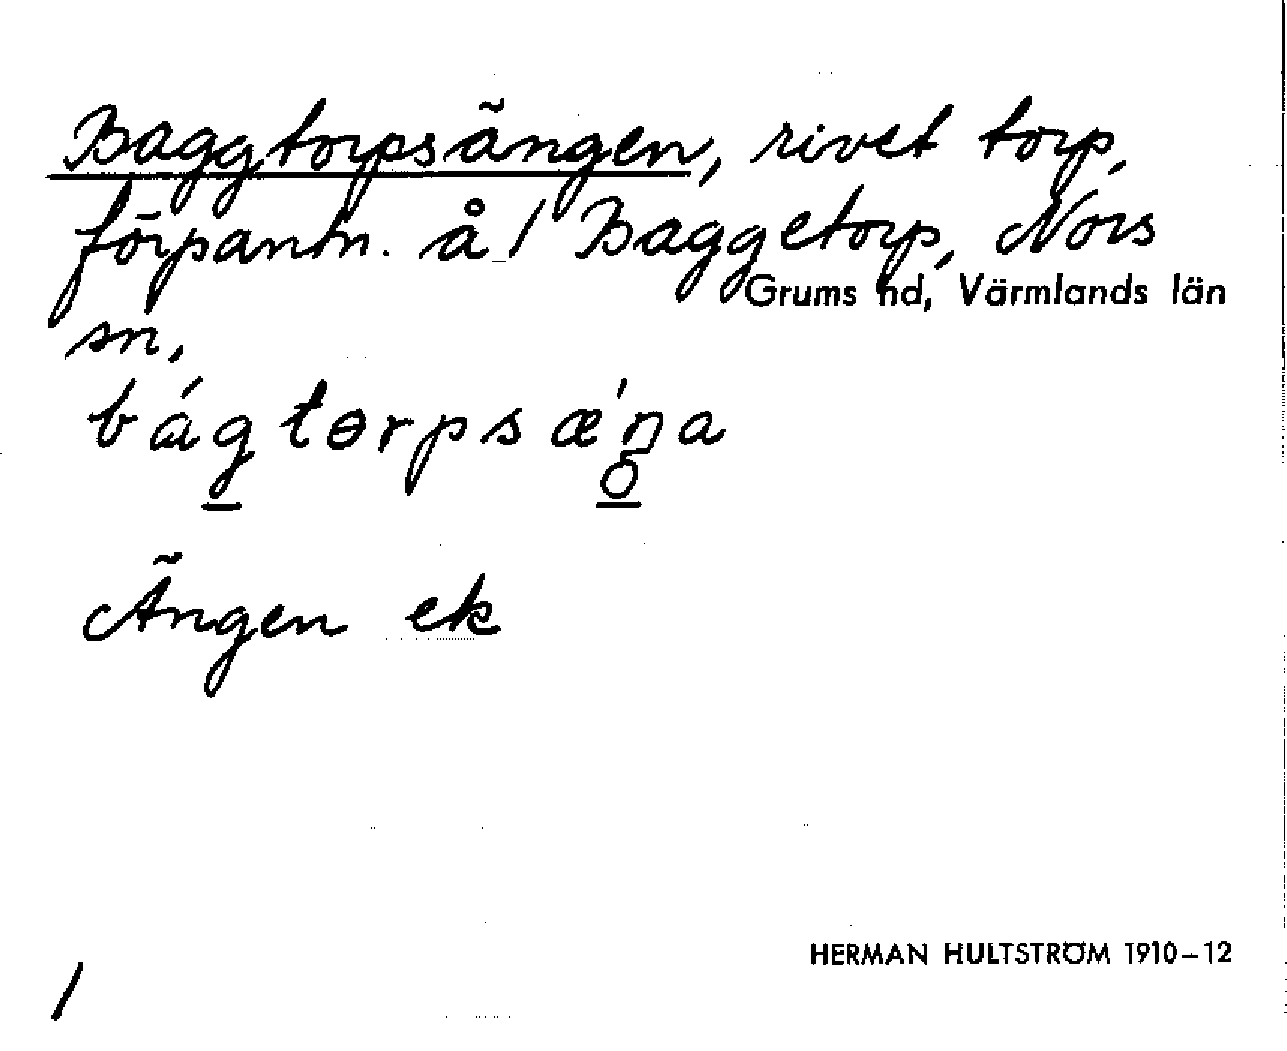 Baggtorpsängen, rivet torp,
förpantn. å 1 Baggetorp, Nors
Grums hd, Värmlands län
sn,
bágtɵrpsǽŋa
Ängen ek
HERMAN HULTSTRÖM 1910–12
/